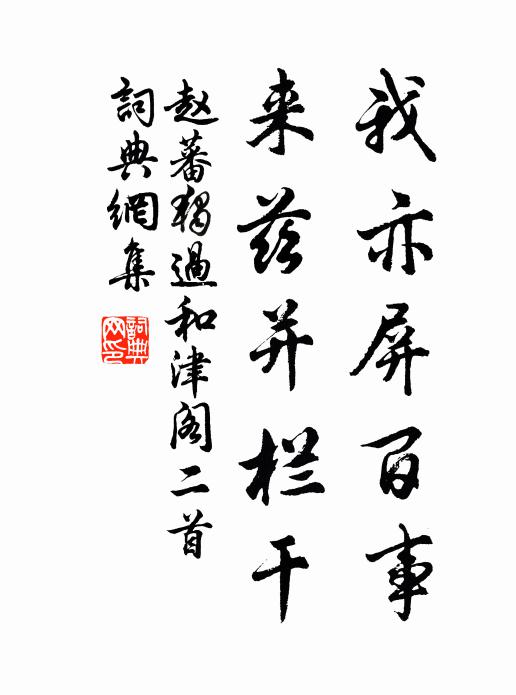 我亦屏百事
来兹并栏干
赵蕃独过和津阁二首
詞典網集
詞典網印